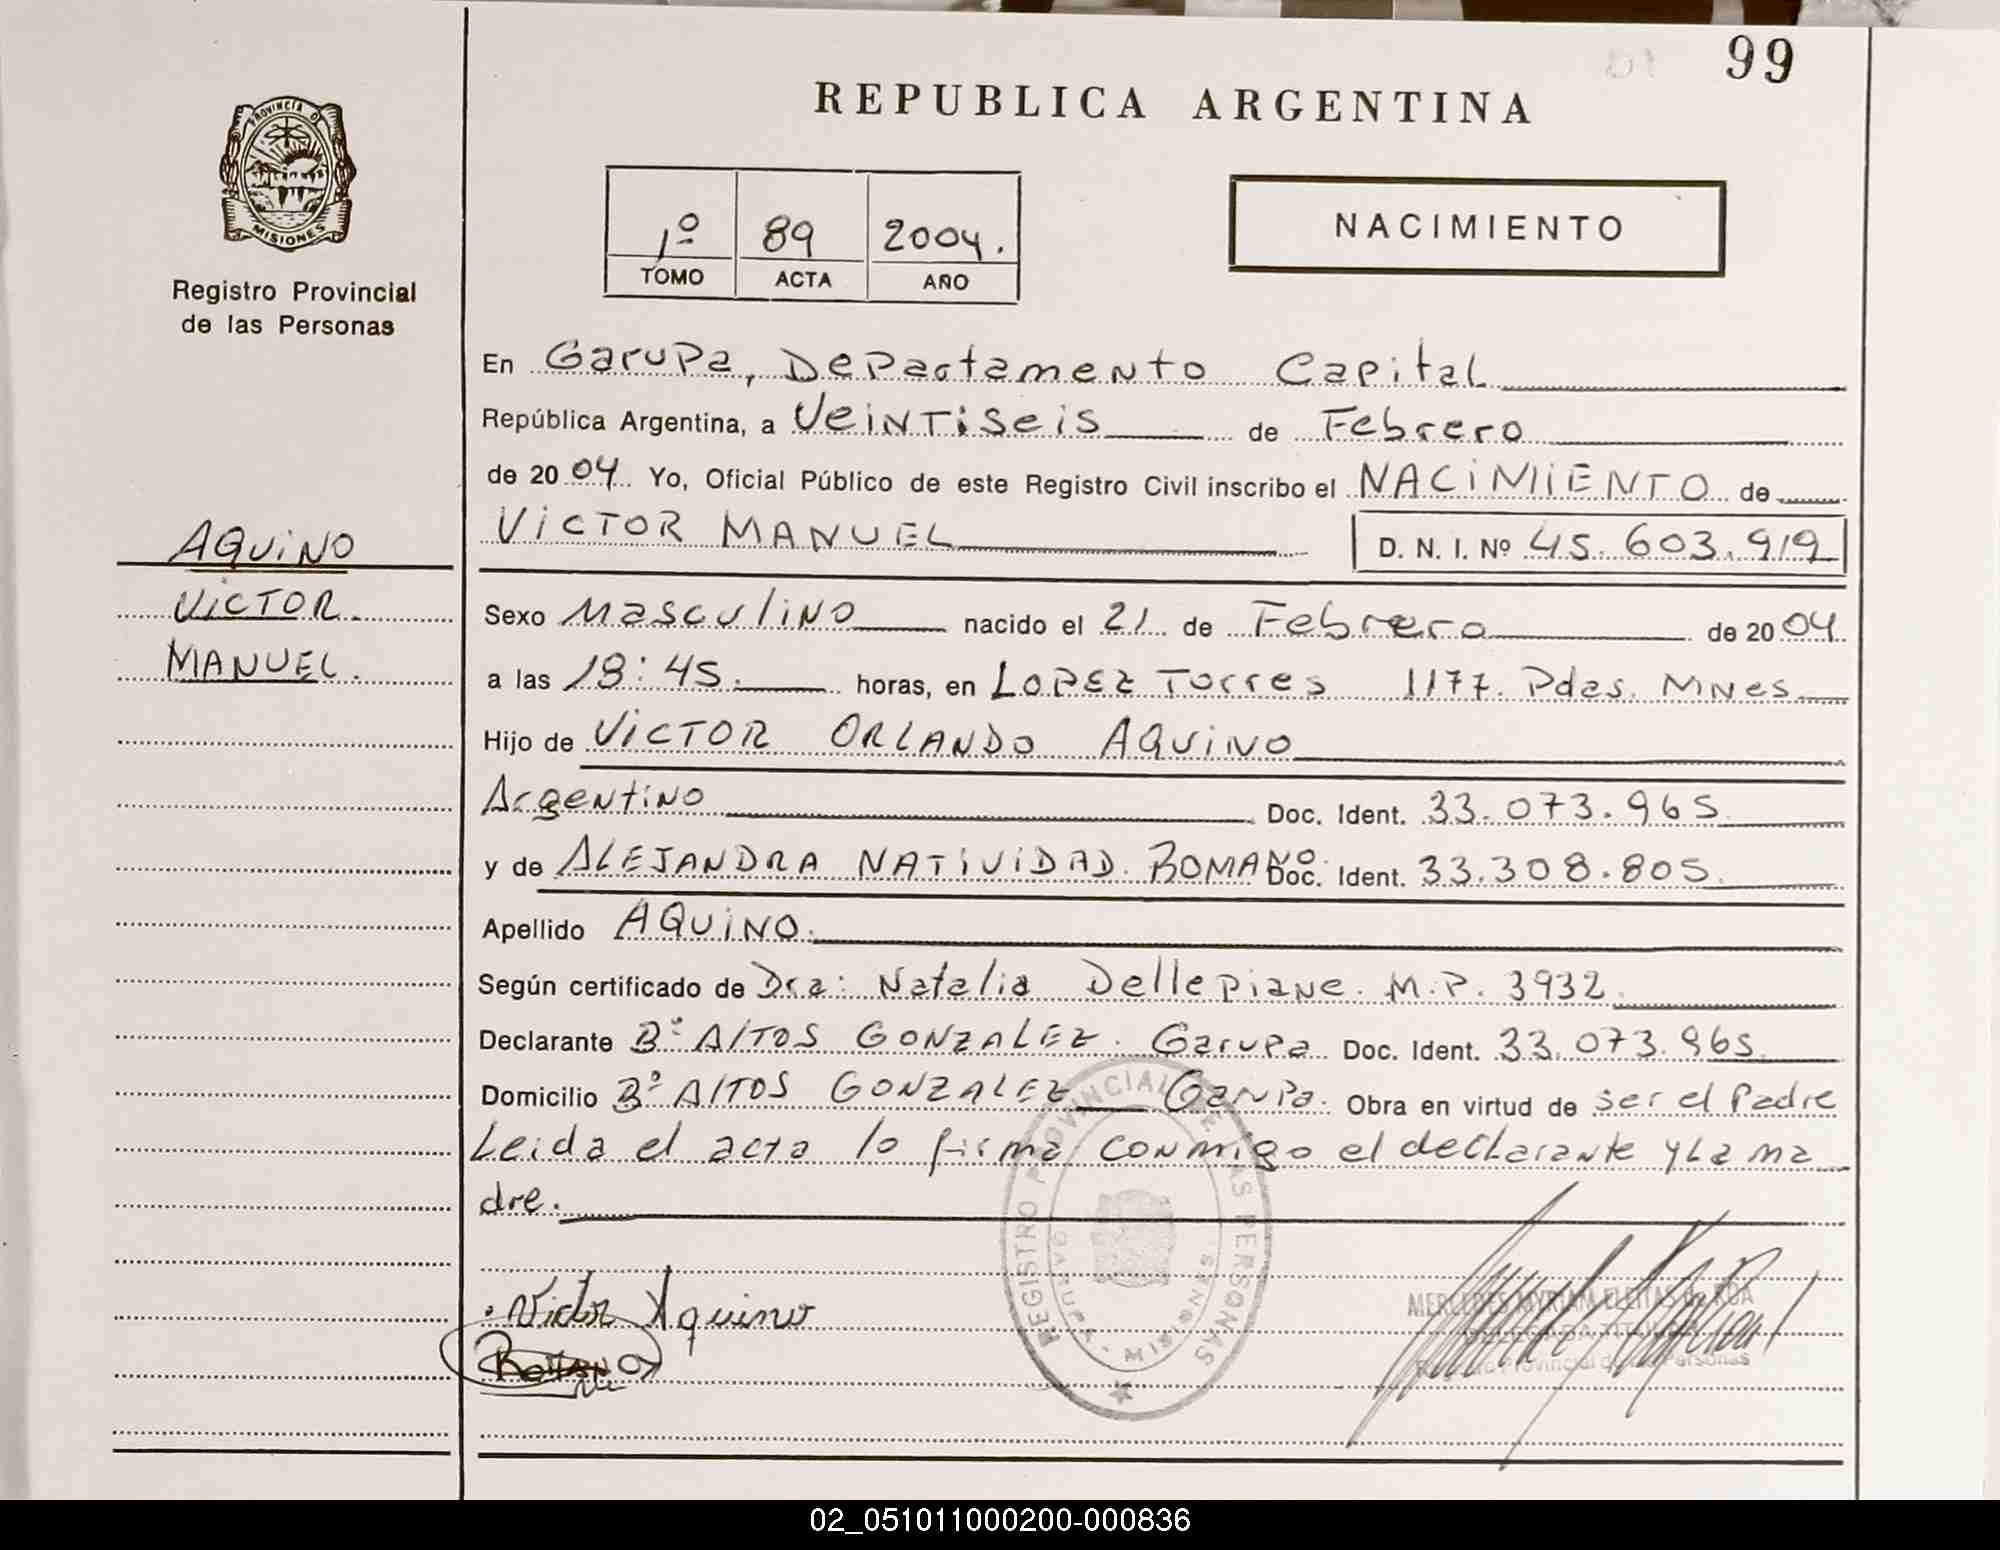 99
REPUBLICA ARGENTINA
PROVINCIA D
MISIONES
Registro Provincial
de las Personas
1º 89 2004.
TOMO ACTA AÑO
NACIMIENTO
En Garupa, Departamento Capital
República Argentina, a Veintiseis de Febrero
de 2004. Yo, Oficial Público de este Registro Civil inscribo el NACIMIENTO de
VICTOR MANUEL D. N. I. Nº 45.603.919
AQUINO
VICTOR
MANUEL.
Sexo Masculino nacido el 21 de Febrero de 2004
a las 18:45. horas, en LOPEZ Torres 1177. Pdas. Mnes
Hijo de VICTOR ORLANDO AQUINO
Argentino Doc. Ident. 33.073.965
y de ALEJANDRA NATIVIDAD ROMANO. Doc. Ident. 33.308.805.
Apellido AQUINO.
Según certificado de Dra: Natalia Dellepiane. M.P. 3932
Declarante Bº AltOS GONZALEZ. Garupa Doc. Ident. 33.073.965
Domicilio Bº AltOS GONZALEZ Garupa. Obra en virtud de ser el Padre
Leida el acta lo firma conmigo el declarante y La ma
dre.
REGISTRO PROVINCIAL DE LAS PERSONAS
MISIONES
Victor Aquino
MERCEDES MYRIAM FLEITAS de ROA
DELEGADA TITULAR
Registro Provincial de las Personas
02_051011000200-000836